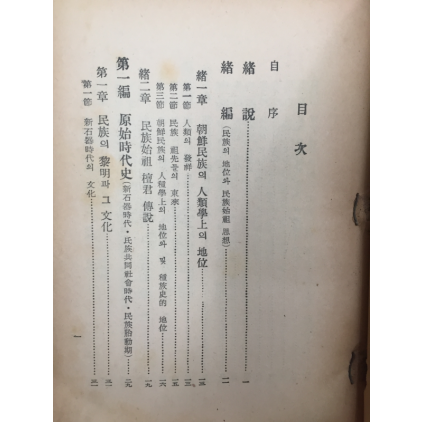 目次
自序
緖說……一
緖編(民族의 地位와 民族始祖 思想)……一一
緖一章 朝鮮民族의 人類學上의 地位……一三
第一節 人類의 發祥……一三
第二節 民族 祖先들의 東來……一五
第三節 朝鮮民族의 人種學上의 地位와 및 種族史的 地位……一六
緖二章 民族始祖 檀君 傳說……一九
第一編 原始時代史(新石器時代・民族共同社會時代・民族胎動期)……二九
第一章 民族의 黎明과 그 文化……三一
第一節 新石器時代의 文化……三一
一